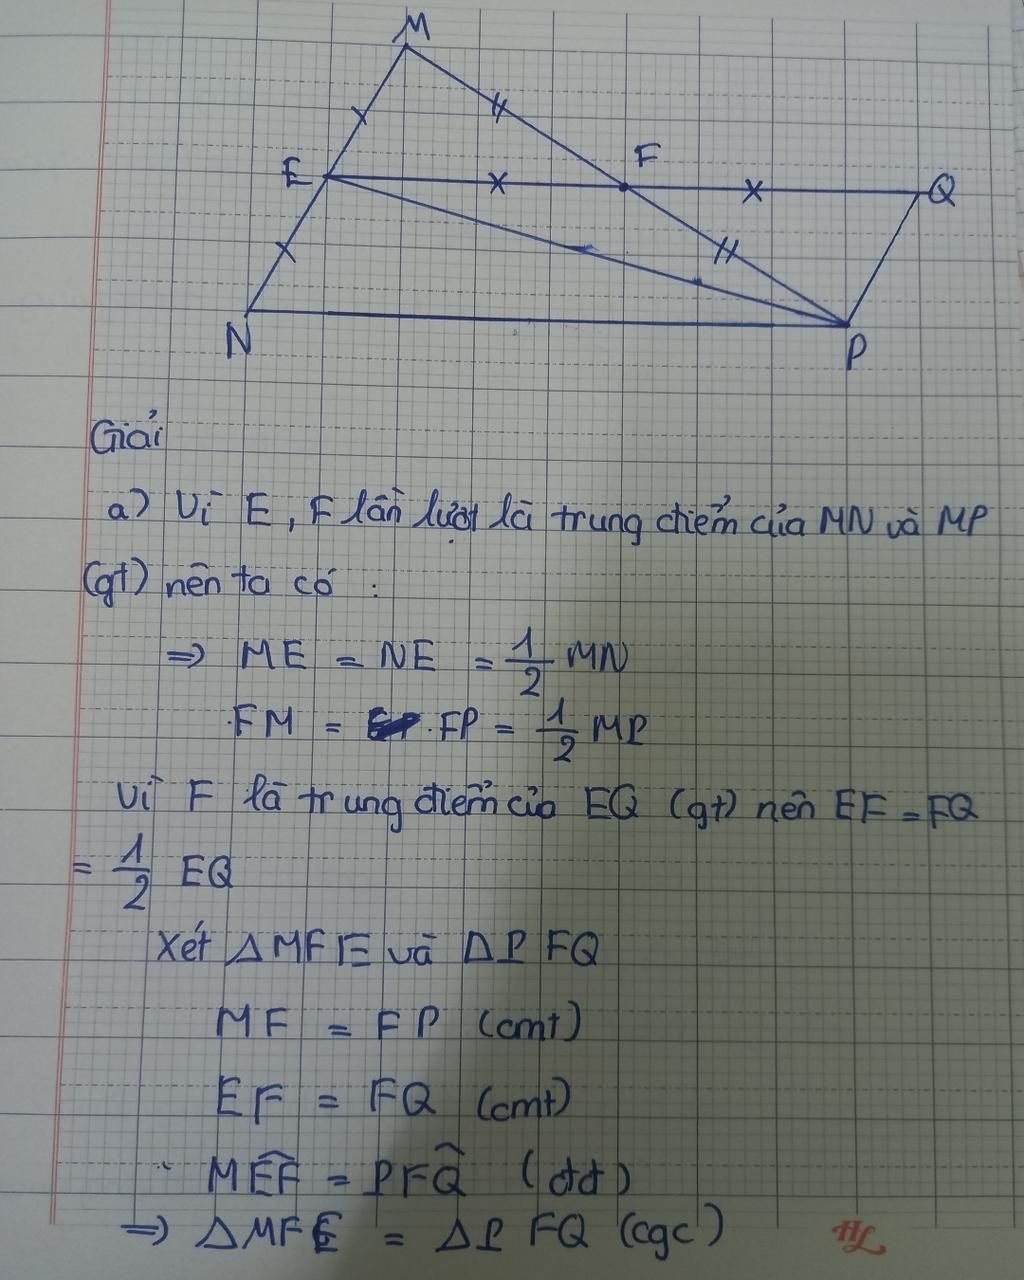 M
E
F
Q
N
P
Giải
a) Vì E, F lần lượt là trung điểm của MN và MP
(gt) nên ta có :
=> ME = NE = 1/2 MN
FM = FP = 1/2 MP
Vì F là trung điểm của EQ (gt) nên EF = FQ
= 1/2 EQ
Xét ΔMFE và ΔPFQ
MF = FP (cmt)
EF = FQ (cmt)
MÊF = PFQ̂ (đđ)
=> ΔMFE = ΔPFQ (cgc)
HL